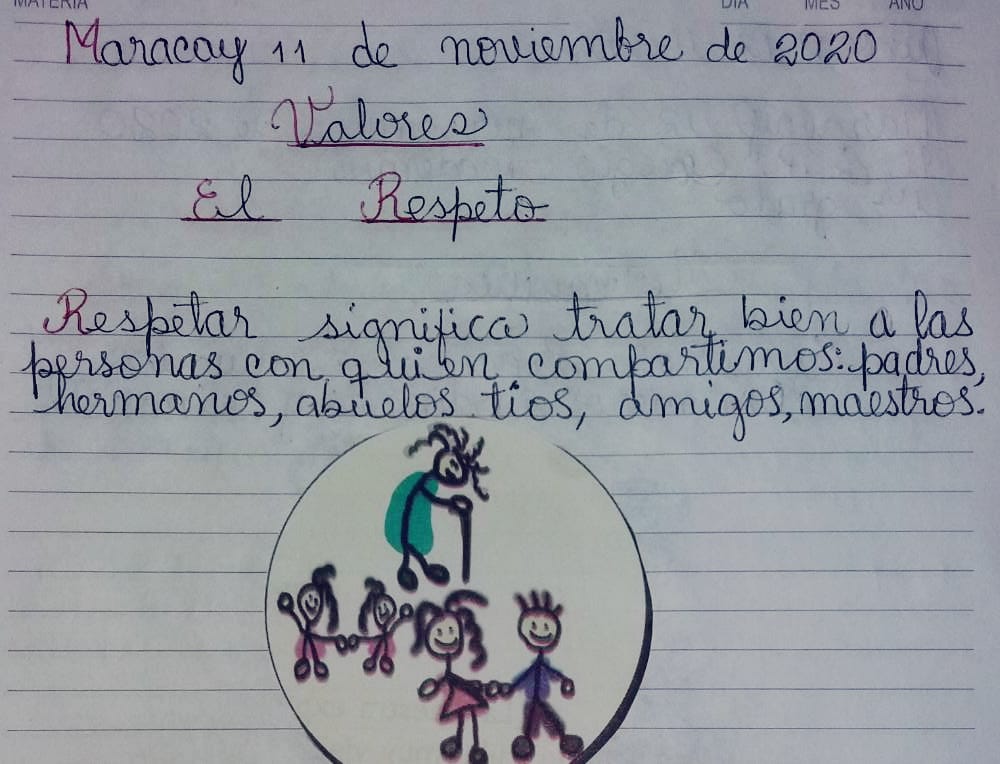 MATERIA DIA MES AÑO
Maracay 11 de noviembre de 2020
Valores
El Respeto
Respetar significa tratar bien a las
personas con quien compartimos: padres,
hermanos, abuelos tios, amigos, maestros.